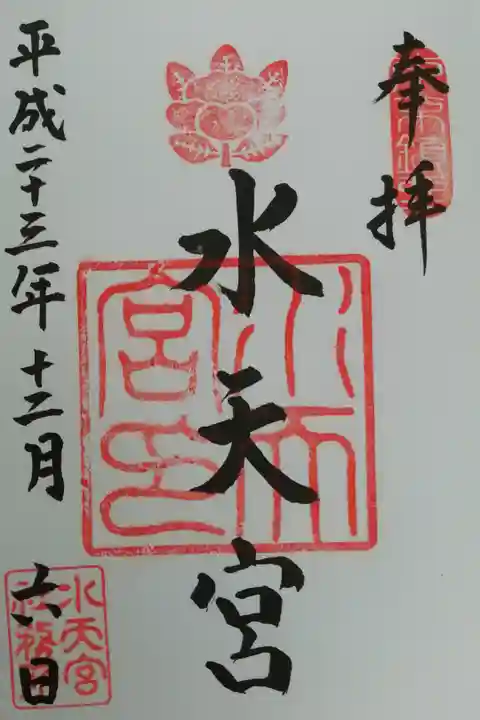 奉拝
水天宮
水天宮印
平成二十三年十二月六日
水天宮